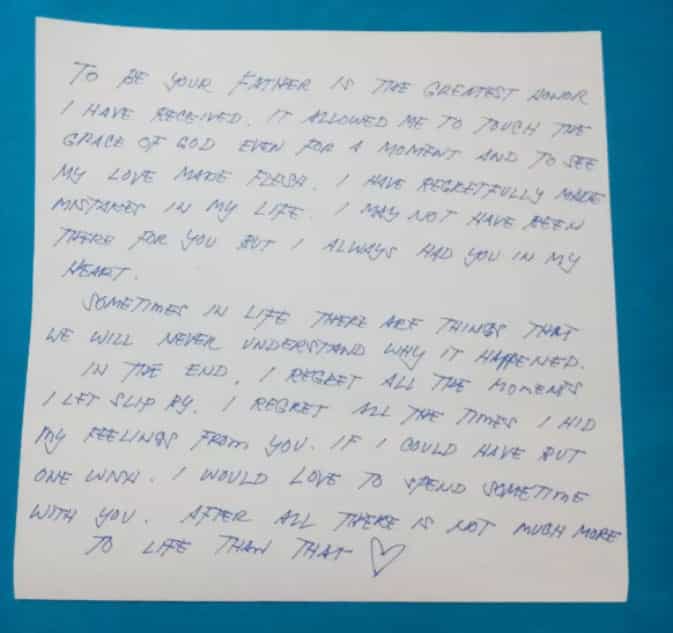 TO BE YOUR FATHER IS THE GREATEST HONOR
I HAVE RECEIVED. IT ALLOWED ME TO TOUCH THE
GRACE OF GOD EVEN FOR A MOMENT AND TO SEE
MY LOVE MADE FLESH. I HAVE REGRETFULLY MADE
MISTAKES IN MY LIFE. I MAY NOT HAVE BEEN
THERE FOR YOU BUT I ALWAYS HAD YOU IN MY
HEART.
SOMETIMES IN LIFE THERE ARE THINGS THAT
WE WILL NEVER UNDERSTAND WHY IT HAPPENED.
IN THE END, I REGRET ALL THE MOMENTS
I LET SLIP BY. I REGRET ALL THE TIMES I HID
MY FEELINGS FROM YOU. IF I COULD HAVE BUT
ONE WISH. I WOULD LOVE TO SPEND SOMETIME
WITH YOU. AFTER ALL THERE IS NOT MUCH MORE
TO LIFE THAN THAT ♡